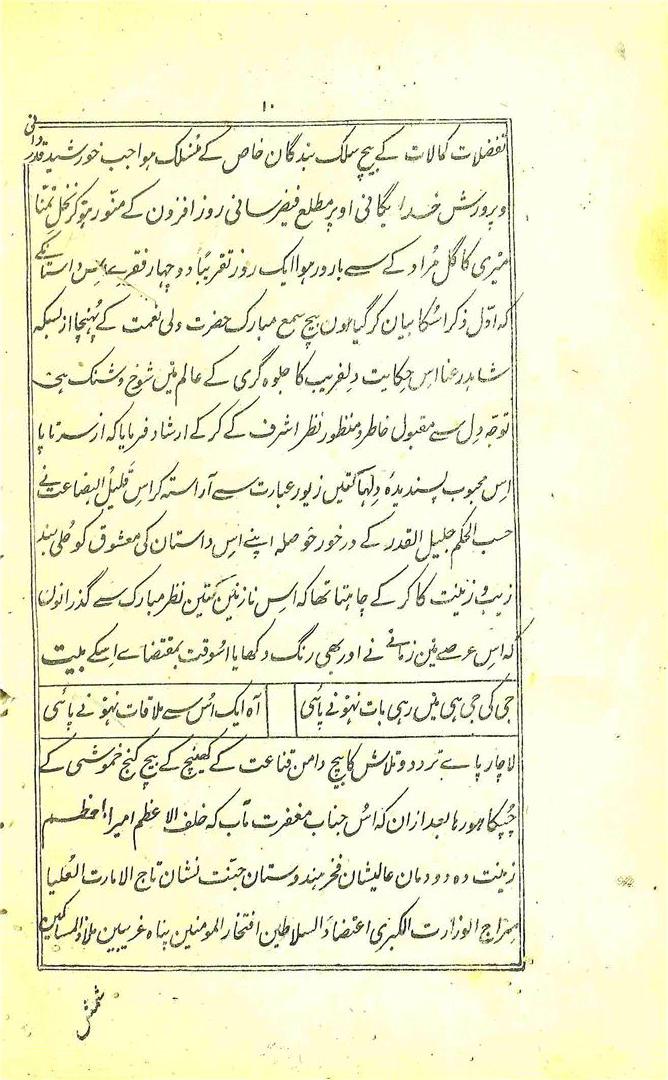 ۱۰
تفضلات کمالات کے بیچ سلک بندگان خاص کے مُنسلک ہوا جب خورشید قدردانی
و پرورش خدایگانی اوپر مطلع فیضرسانی روز افزون کے منوّر ہو کر نخل تمنّا
میری کا گل مُراد کے سے بارور ہوا ایک روز تقریباً دو چہار فقرے اِس داستانکے
کہ اوّل ذکر اُسکا بیان کر گیا ہون بیچ سمع مبارک حضرت ولی نعمت کے پُہنچا از بسکہ
شاہد رعنا اس حِکایت دلفریب کا جلوہ گری کے عالم مین شوخ و شنگ ہی
توجّہ دِل سے مقبول خاطر و منظور نظر اشرف کے کر کے ارشاد فرمایا کہ از سر تا پا
اِس محبوب پسندیدۂ دِلہا کتئین زیور عبارت سے آراستہ کر اِس قلیلُ البضاعت نے
حسب الحکم جلیل القدر کے درخور حوصلہ اپنے اِس داستان کی معشوق کو حُلی بند
زیب و زینت کا کر کے چاہتا تھا کہ اس نازنین کتئین نظر مبارک سے گذرانون
کہ اس عرصے مین زمانے نے اور بھی رنگ دکھایا اسوقت بمقتضاے اسکے بیت
جی کی جی ہی مین رہی بات نہونے پائی آہ ایک اُس سے ملاقات نہونے پائی
لاچار پاے تردد و تلاش کا بیچ دامن قناعت کے کھینچ کے بیچ کنج خموشی کے
چُپکا ہو رہا بعد ازان کہ اُس جناب مغفرت مآب کہ خلف الاعظم امیر
زینت دہ دودمان عالیشان فخر ہندوستان جنّت نشان تاج الامارت العُلیا
سِراج الوزارت الکبریٰ اعتضاد السلاطین افتخار المومنین پناہ غریبین ملاذ المساکین
شمش